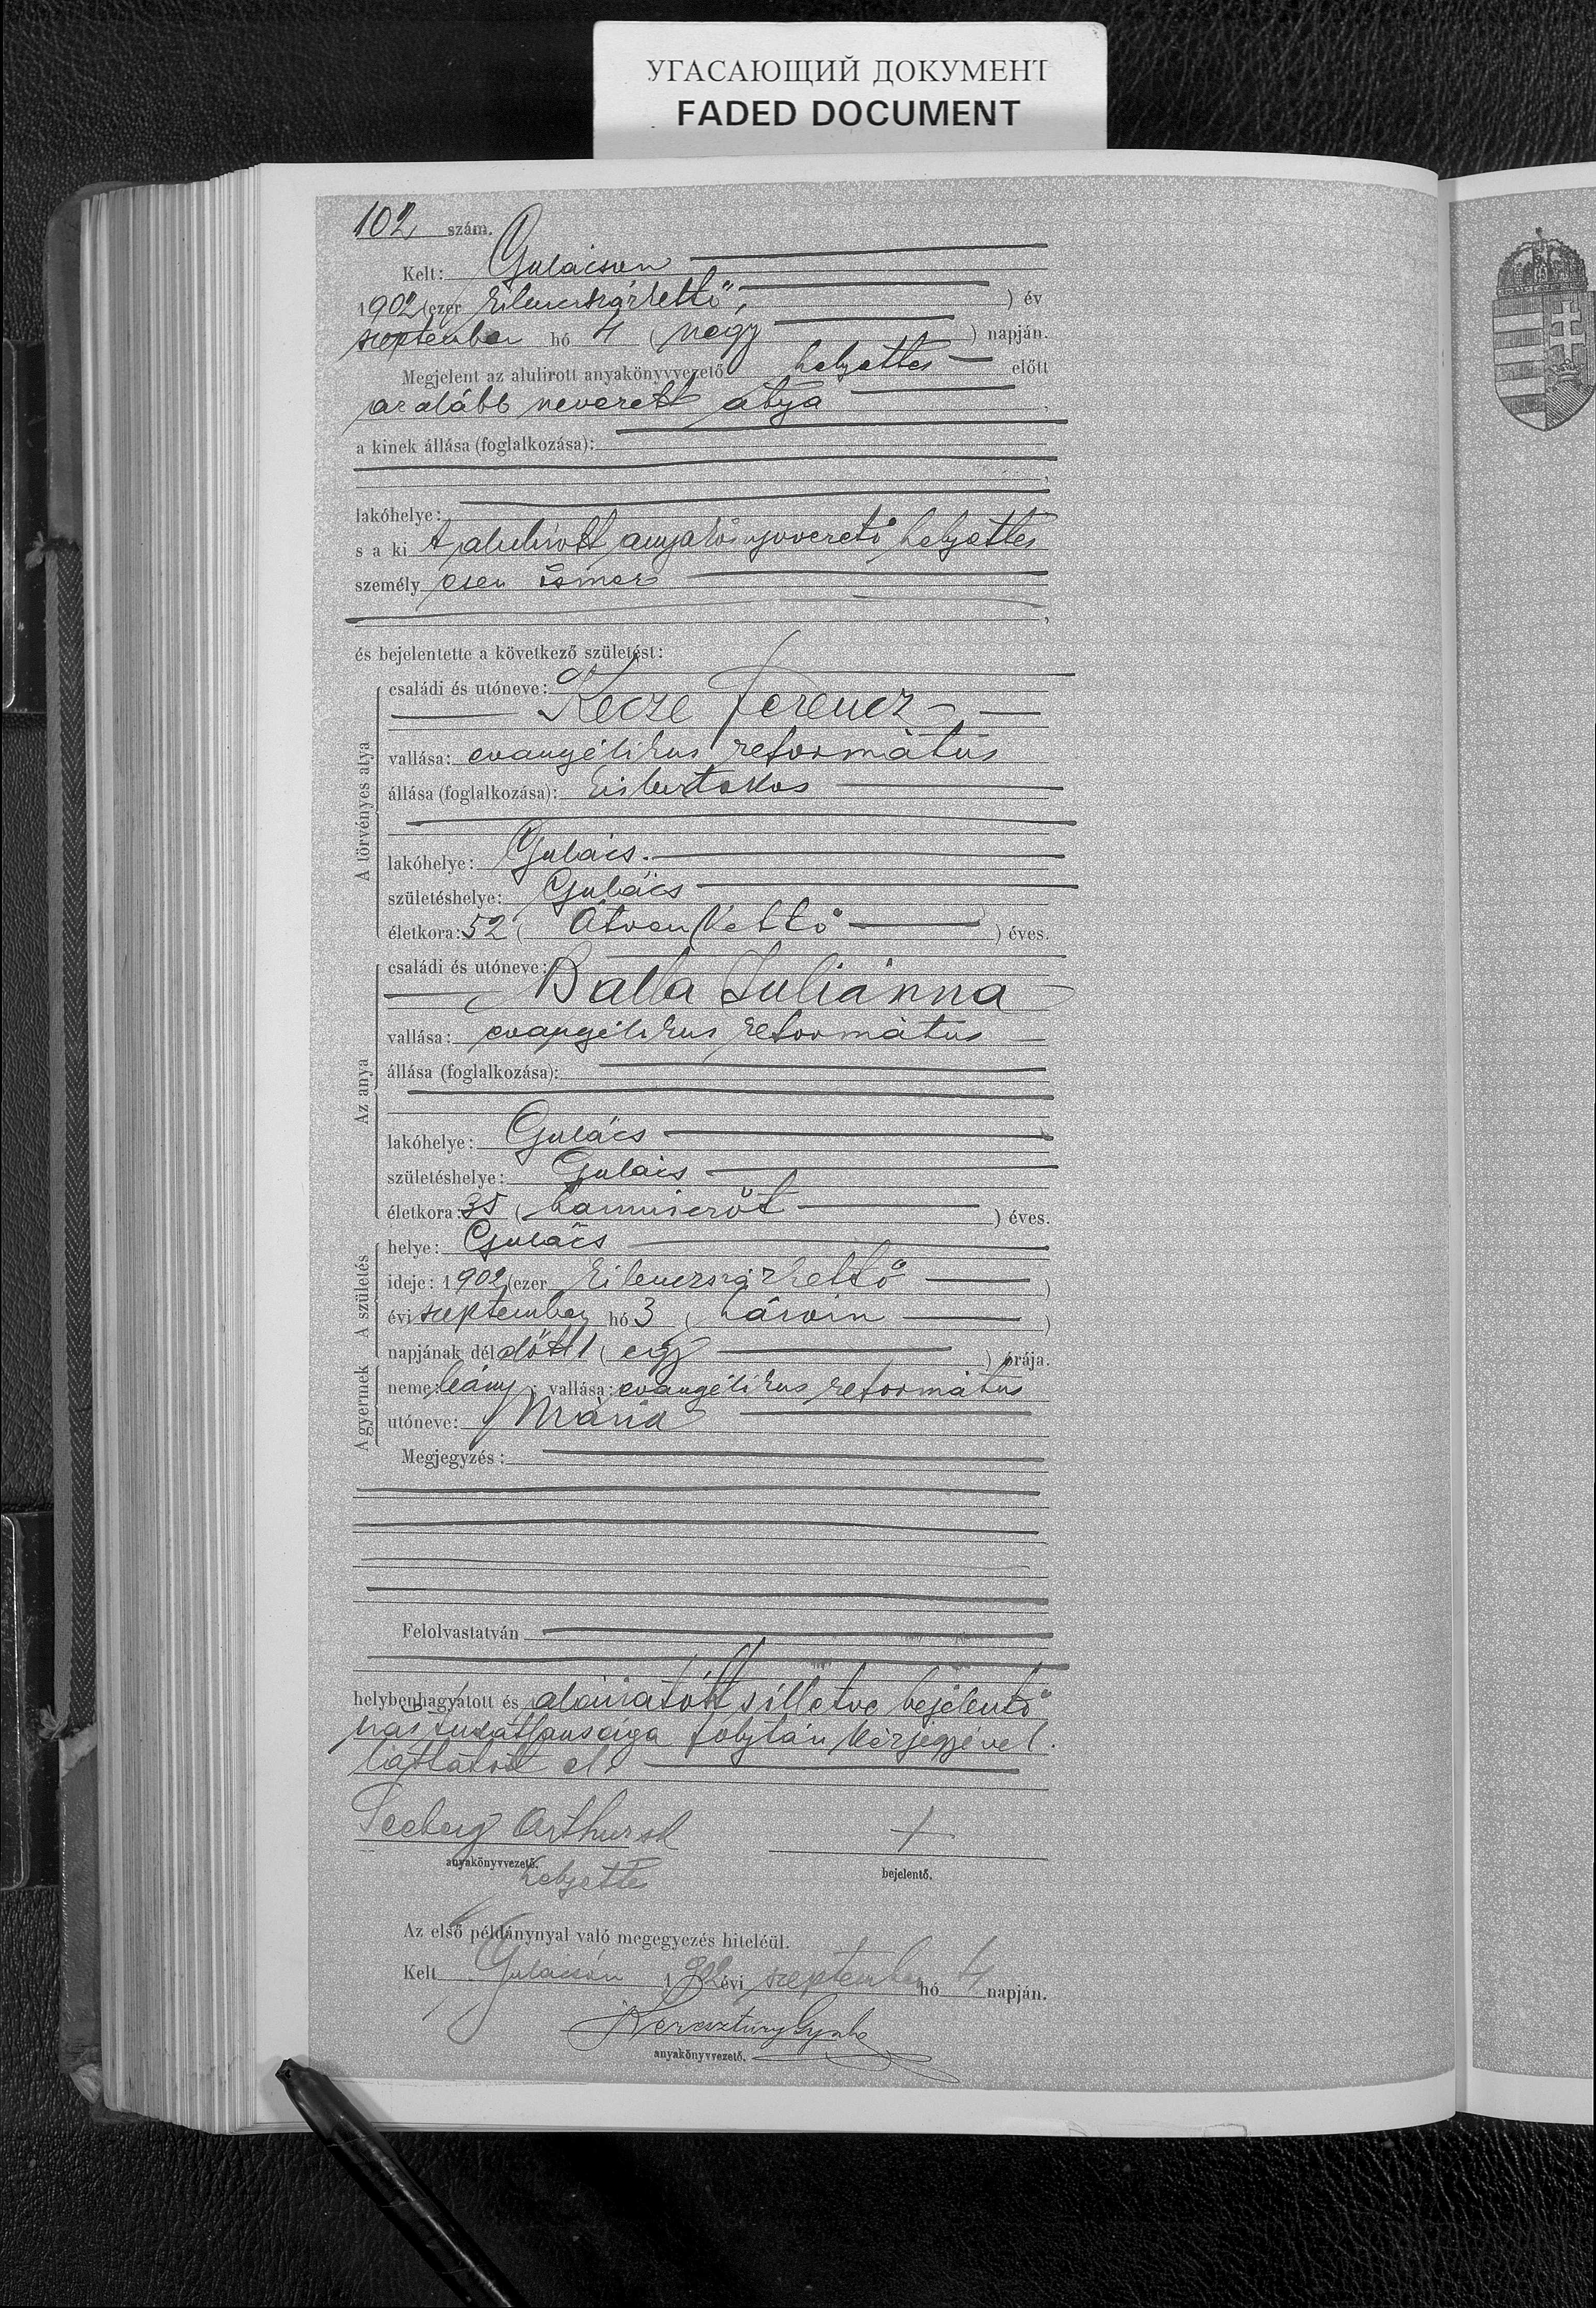 УГАСАЮЩИЙ ДОКУМЕНТ
FADED DOCUMENT
102 szám.
Kelt: Gulácson
1902 (ezer kilenczszázkettő, ) év
szeptember hó 4 ( négy ) napján.
Megjelent az alulirott anyakönyvvezető helyettes előtt
az alább nevezett atya ,
a kinek állása (foglalkozása):
lakóhelye:
s a ki t alulirott anyakönyvvezető helyettes
személy esen ismer
és bejelentette a következő születést:
A törvényes atya
családi és utóneve:
Kecze Ferencz
vallása: evangélikus református
állása (foglalkozása): kisbirtokos
lakóhelye: Gulács.
születéshelye: Gulács
életkora: 52 ( ötvenkettő ) éves.
Az anya
családi és utóneve:
Balla Juliánna
vallása: evangélikus református
állása (foglalkozása):
lakóhelye: Gulács
születéshelye: Gulács
életkora: 35 ( harmincöt ) éves.
A születés
helye: Gulács
ideje: 1902 (ezer kilenczszázkettő )
évi szeptember hó 3 ( három )
napjának dél előtt 1 ( egy ) órája.
A gyermek
neme: leány ; vallása: evangélikus református
utóneve: Mária
Megjegyzés:
Felolvastatván
helybenhagyatott és aláiratott, illetve bejelentő
irás tudatlansága folytán kézjegyével
láttatott el.
Seeberg Arthur sk
anyakönyvvezető.
helyettes
+
bejelentő.
Az első példánynyal való megegyezés hiteléül.
Kelt Gulácson 1902 évi szeptember hó 4 napján.
Keresztury Gyula
anyakönyvvezető.